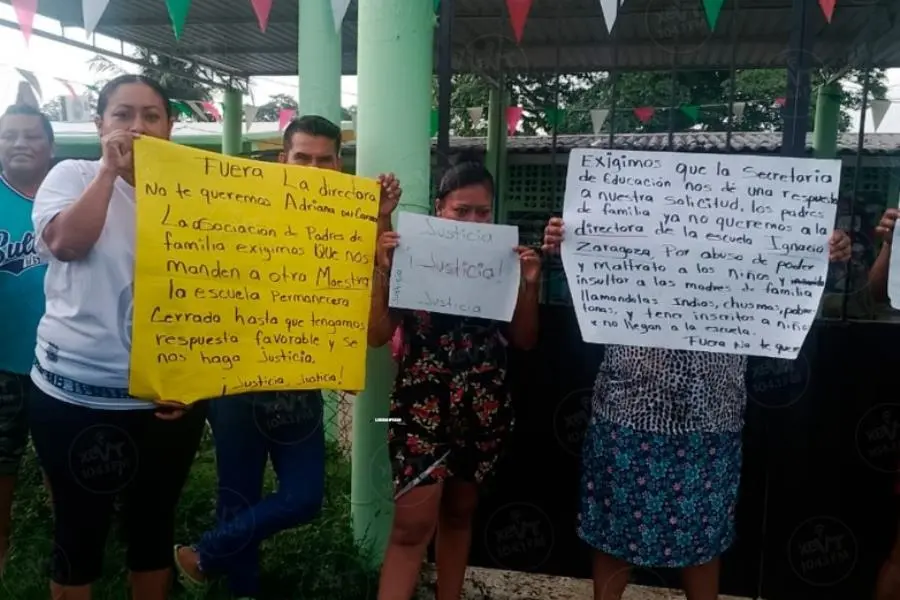 Fuera La directora
No te queremos Adriana del Carmen
La asociacion de Padres de
familia exigimos Que nos
manden a otra Maestra
la escuela Permanecera
Cerrada hasta que tengamos
respuesta favorable y se
nos haga justicia.
¡Justicia, Justicia!
Justicia
¡Justicia!
Justicia
Justicia
Exigimos que la Secretaria
de Educación nos dé una respuesta
a nuestra solicitud, los padres
de familia ya no queremos a la
directora de la escuela Ignacio
Zaragoza, Por abuso de poder
y maltrato a los niños y
insultar a las madres de familia
llamandolas Indias, chusmas, pobre-
tonas, y tener inscritos a niños
q no llegan a la escuela.
Fuera No te quer
XEVT
104.1 FM